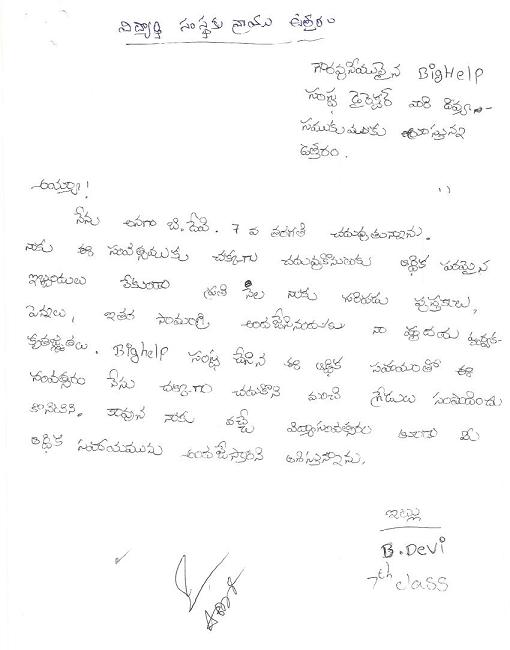 విద్యార్థి సంస్థకు వ్రాయు ఉత్తరం
గౌరవనీయులైన BigHelp
సంస్థ డైరెక్టర్ వారి దివ్య -
సముఖమునకు వ్రాస్తున్న
ఉత్తరం.
అయ్యా!
నేను అనగా బి.దేవి. 7 వ తరగతి చదువుతున్నాను.
నాకు ఈ సంవత్సరముకు చక్కగా చదువుకొనుటకు ఆర్థిక పరమైన
ఇబ్బందులు లేకుండా ప్రతి నెల నాకు సరిపడు పుస్తకాలు,
పెన్నులు, ఇతర సామాగ్రి అందజేసినందుకు నా హృదయ పూర్వక
కృతజ్ఞతలు. BigHelp సంస్థ చేసిన ఈ ఆర్థిక సహాయంతో ఈ
సంవత్సరం నేను చక్కగా చదువుకొని మంచి గ్రేడులు సంపాదించు
కొంటిని. కావున నాకు వచ్చే విద్యాసంవత్సరం కూడా మీ
ఆర్థిక సహాయమును అందజేస్తారని ఆశిస్తున్నాను.
ఇట్లు
B. Devi
7th class